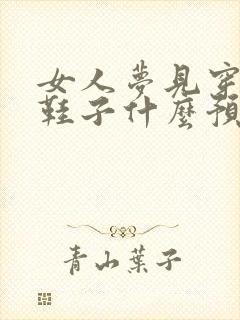 女人夢見穿
鞋子什麼預
青山葉子